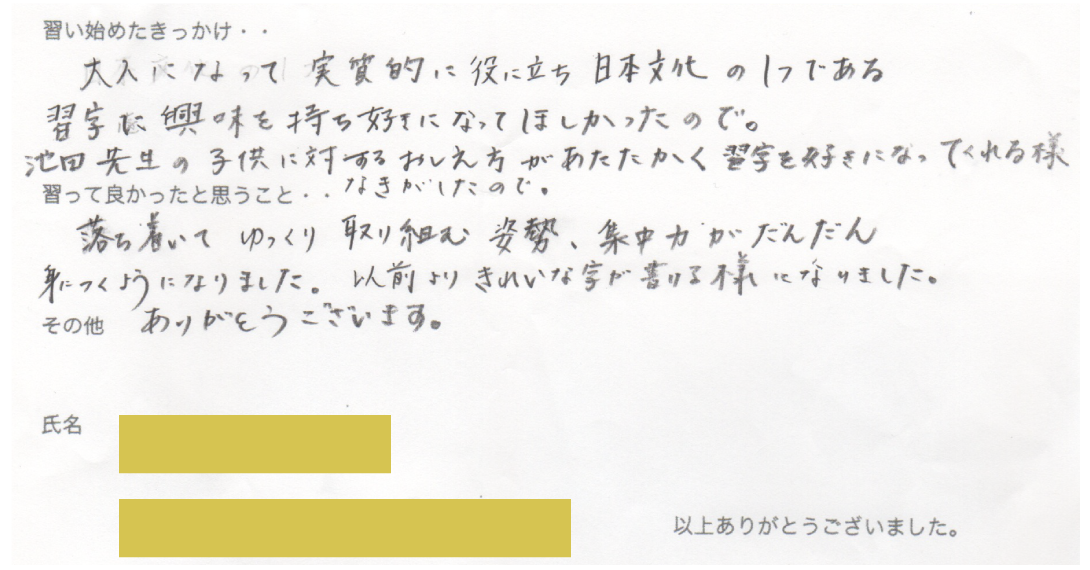 習い始めたきっかけ・・
大人になって 実質的に 役に立ち 日本文化 の1つである
習字に興味を持ち好きになってほしかったので。
池田先生の子供に対するおしえ方があたたかく習字を好きになってくれる様
なきがしたので。
習って良かったと思うこと・・
落ち着いて ゆっくり 取り組む 姿勢、集中力がだんだん
身につくようになりました。以前よりきれいな字が書ける様になりました。
その他 ありがとうございます。
氏名
以上ありがとうございました。